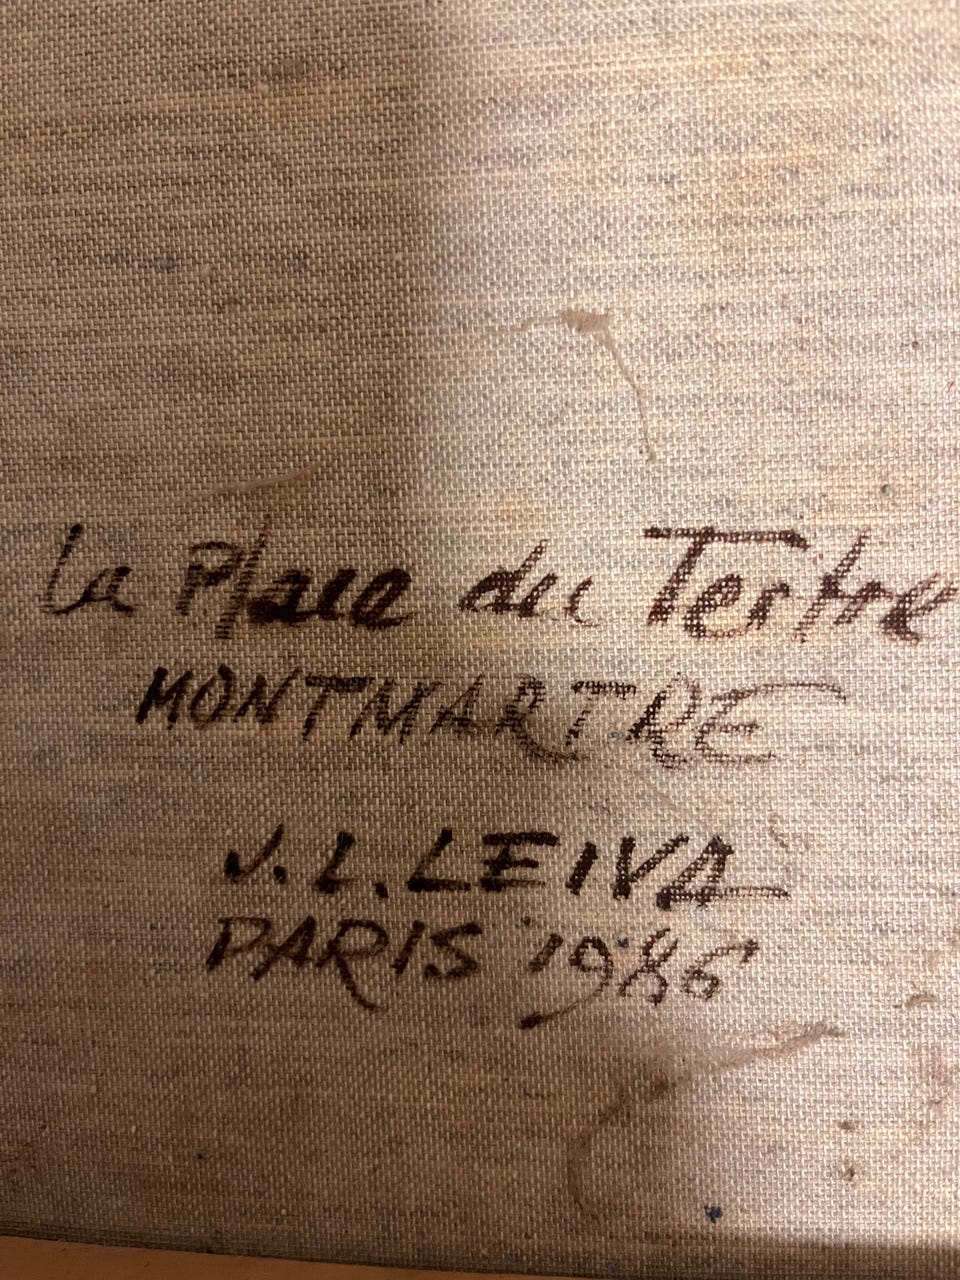 La Place du Tertre
MONTMARTRE
J. L. LEIVA
PARIS 1986